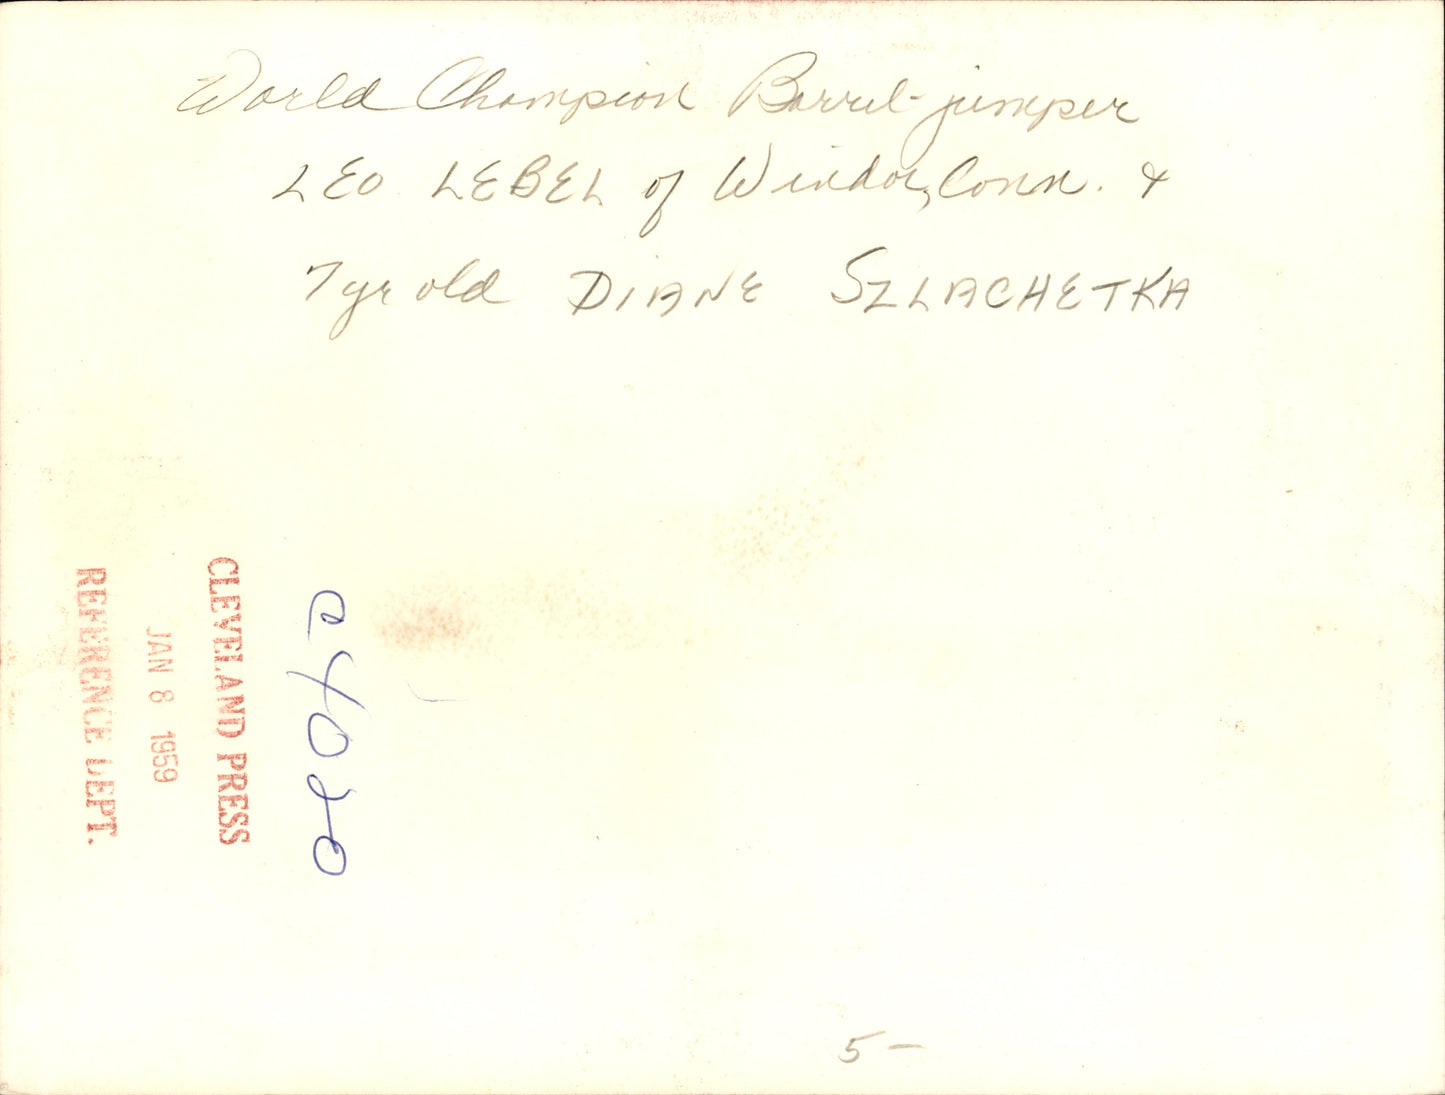 World Champion Barrel-jumper
LEO LEBEL of Windor, Conn. &
7 yr old DIANE SZLACHETKA
CLEVELAND PRESS
JAN 8 1959
REFERENCE DEPT.
5-